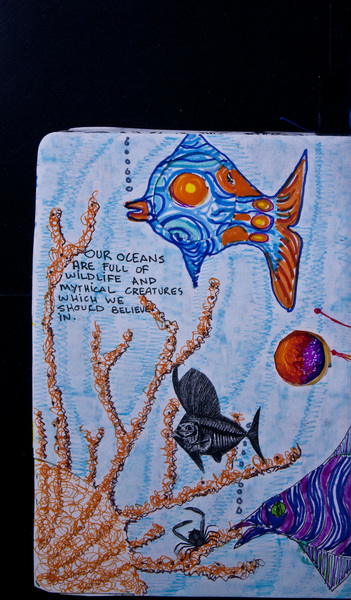 OUR OCEANS
ARE FULL OF
WILDLIFE AND
MYTHICAL CREATURES
WHICH WE
SHOULD BELIEVE
IN.